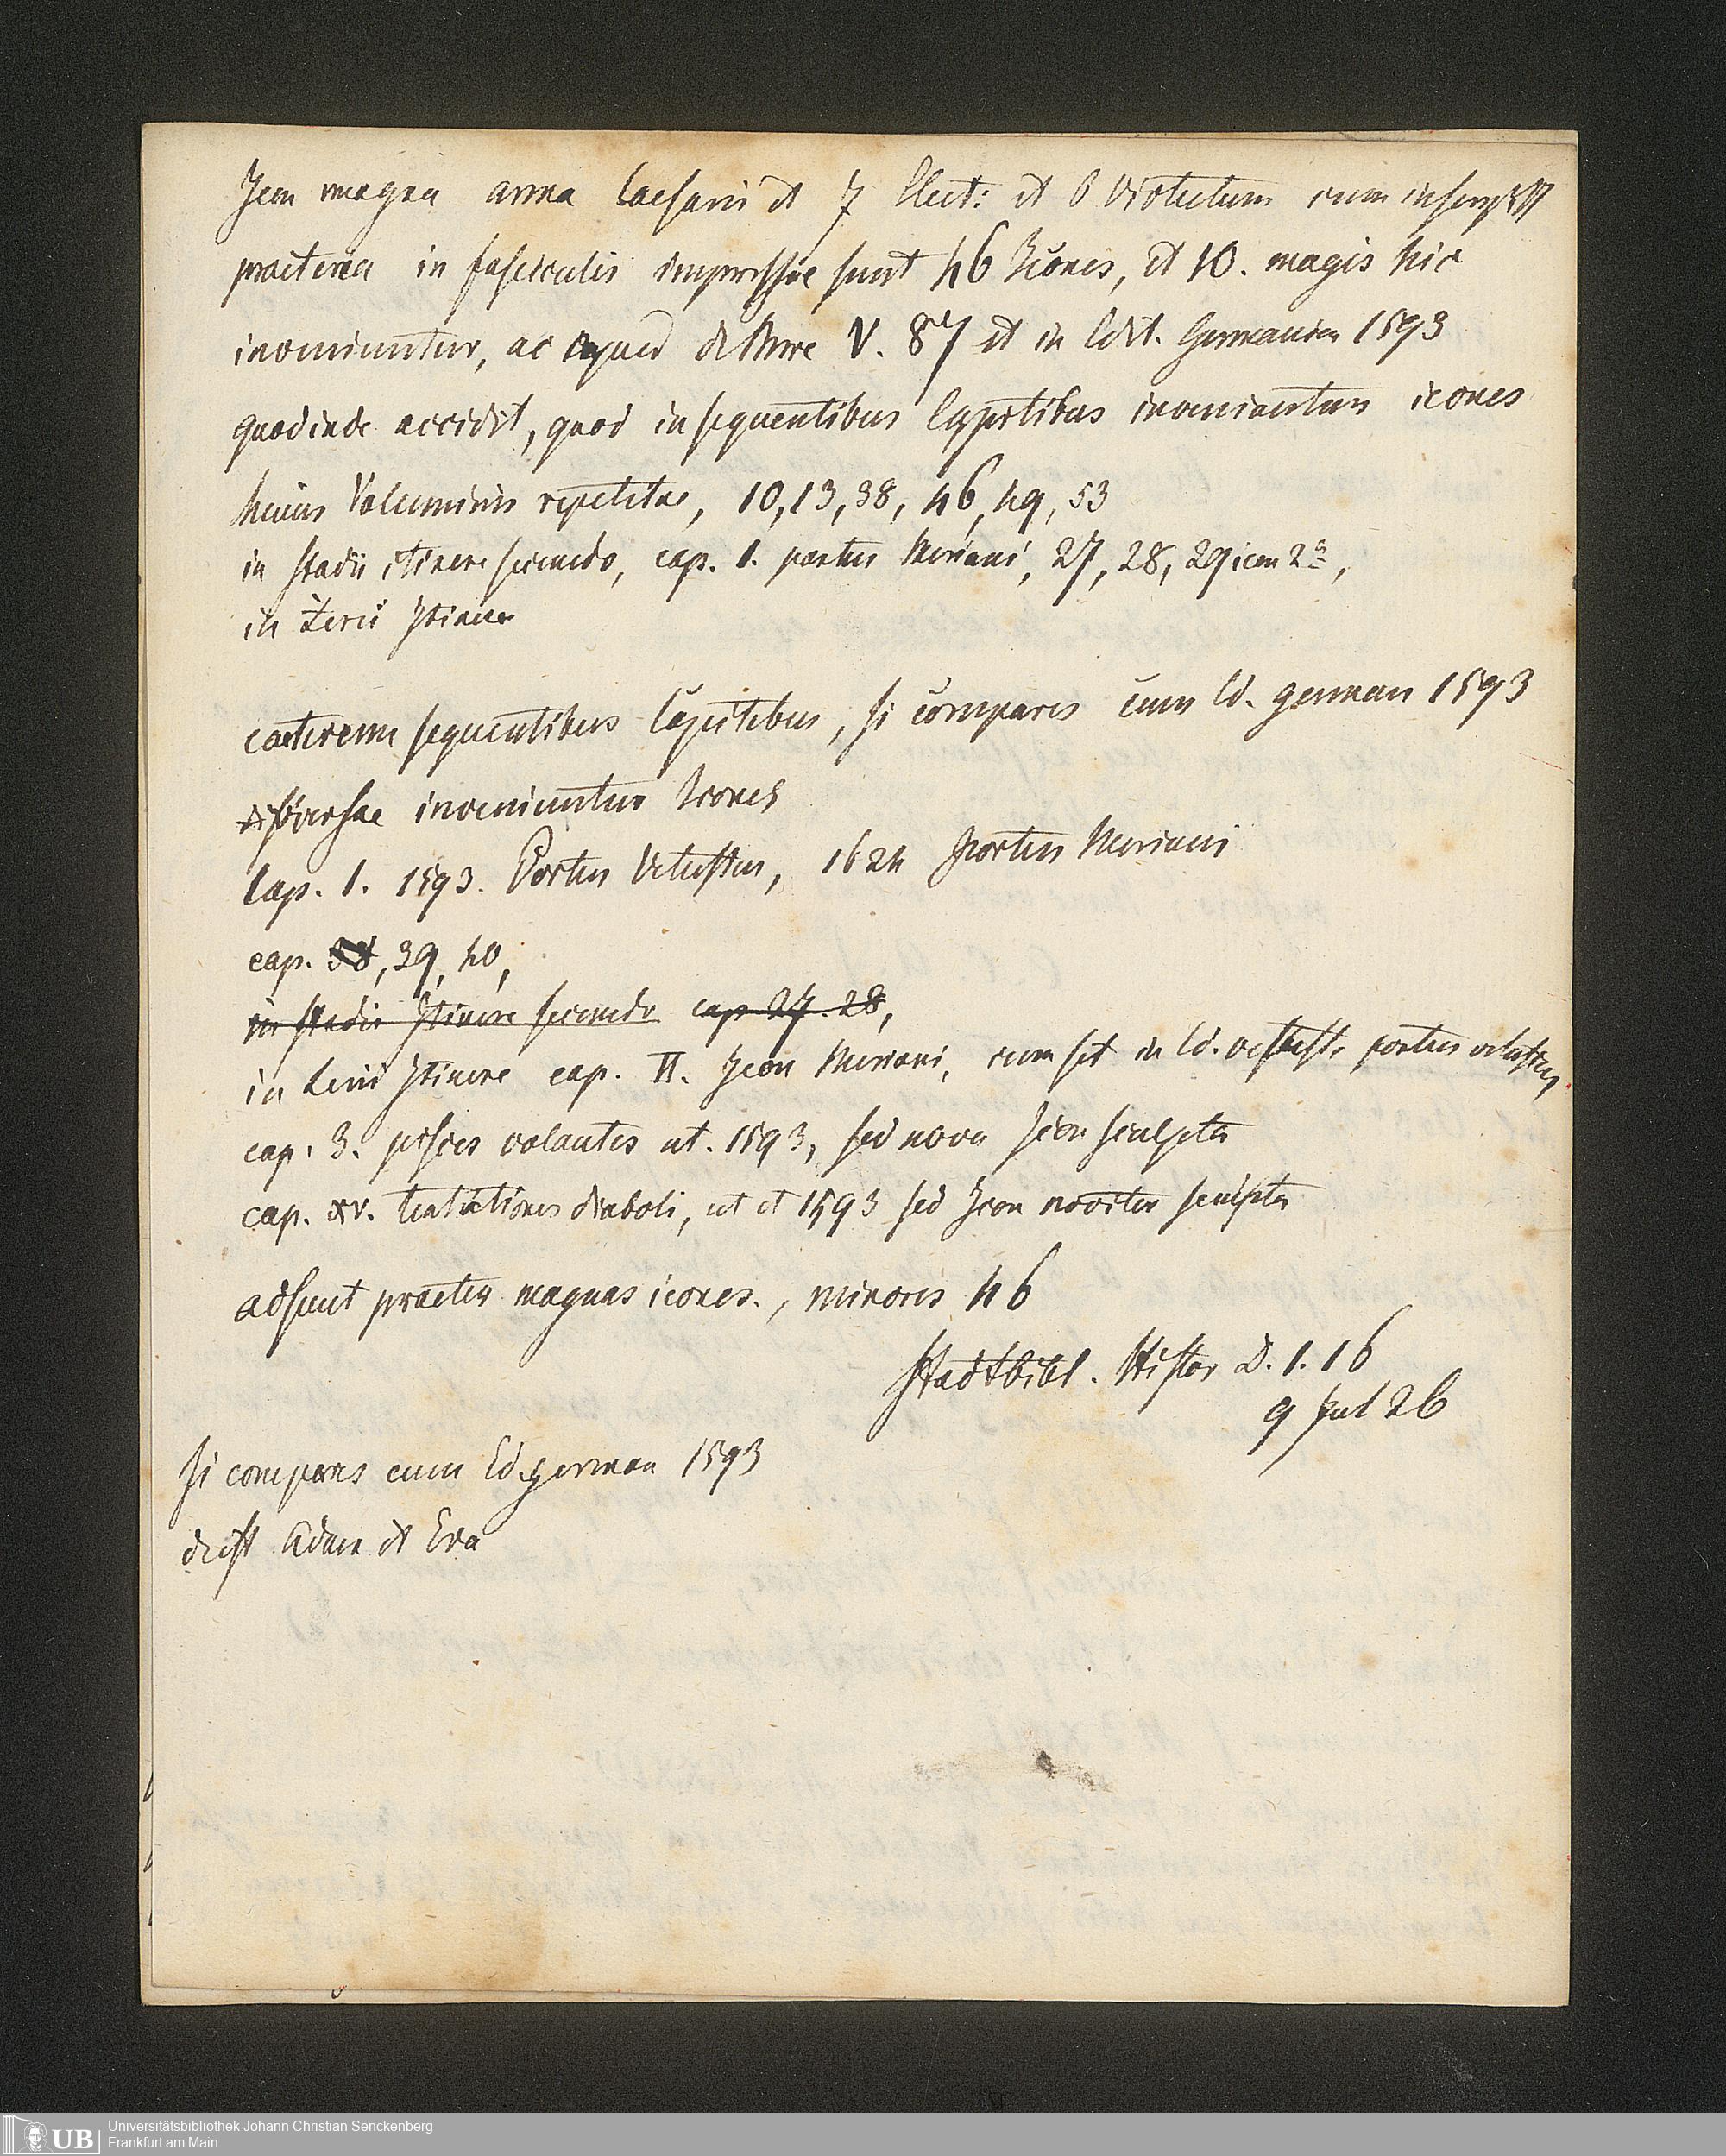 Icon magna arma Caesaris et 7 Elect: et 6 virtutum cum inscript
praeterea in fasciculis impressae sunt 46 Icones, et 10. magis hic
inveniuntur, ac apud de Mure V. 87 et in Edit. Germanica 1593
quod inde accidit, quod in sequentibus Capitibus inveniantur icones
huius Voluminis repetitae, 10, 13, 38, 46, 49, 53
in Stadii itinere secundo, cap. 1. portus Meriani, 27, 28, 29 icon 2a,
in Lerii Itinere
caeterum sequentibus Capitibus, si compares cum Ed. german 1593
diversae inveniuntur Icones
Cap. 1. 1593. Portus Vetustus, 1624 portus Meriani
cap. 38, 39, 40,
in Stadii Itinere secundo cap 27. 28,
in Lerii Itinere cap. II. Icon Meriani, cum sit in Ed. portus vetustus
cap. 3. pisces volantes ut. 1593, sed nova Icon sculpta
cap. XV. tentationes diaboli, ut et 1593 sed Icon noviter sculpta
adsunt praeter magnas icones., minores 46
Stadtbibl. Histor D. 1. 16
9 Jul 26
Si compares cum Ed. german 1593
deest Adam et Eva
UB
Universitätsbibliothek Johann Christian Senckenberg
Frankfurt am Main